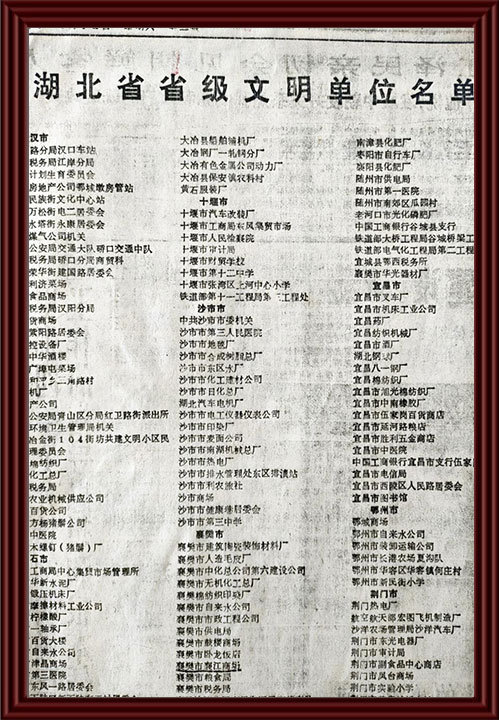 湖北省省级文明单位名单
汉市
路分局汉口车站
税务局江岸分局
计划生育委员会
房地产公司鄂城墩房管站
民族街文化中心站
万松街电二居委会
水塔街永康居委会
煤气公司机关
公安局交通大队硚口交通中队
税务局硚口分局商贸科
荣华街建国路居委会
利济菜场
食品商场
税务局汉阳分局
货商场
紫阳路居委会
控设备厂
中华酒楼
广埠屯菜场
和平乡二角路村
机厂
产公司
公安局青山区分局红卫路街派出所
环境卫生管理局机关
冶金街104街坊共建文明小区民
理委员会
棉纺织厂
化工总厂
税务局
农业机械供应公司
百货公司
方杨猪鬃公司
中医院
木螺钉（猪鬃）厂
石市
工商局中心集贸市场管理所
华新水泥厂
锻压机床厂
摩擦材料工业公司
柠檬酸厂
一轴承厂
百货大楼
自来水公司
津昌商场
第三医院
东风一路居委会
大冶县船舶辅机厂
大冶钢厂一轧钢分厂
大冶有色金属公司动力厂
大冶县保安镇农科村
黄石服装厂
十堰市
十堰市汽车改装厂
十堰市工商局东风集贸市场
十堰市人民检察院
十堰市审计局
十堰市财贸学校
十堰市第十二中学
十堰市张湾区上河中心小学
铁道部第十一工程局第三工程处
沙市市
中共沙市市委机关
沙市市第三人民医院
沙市市地毯厂
沙市市合成树脂总厂
沙市市东区水厂
沙市市化工建材公司
沙市市日化总厂
湖北汽车电机厂
沙市市电工仪器仪表公司
沙市市印染厂
沙市市麦面公司
沙市市南湖机械总厂
沙市市热电厂
沙市市排水管理处东区排渍站
沙市市利农农社
沙市商场
沙市市健康巷居委会
沙市市第三中学
襄樊市
襄樊市建筑陶瓷装饰材料厂
襄樊市人造毛皮厂
襄樊市中化总公司第六建设公司
襄樊市无机化工总厂
襄樊棉纺织印染厂
襄樊市自来水公司
襄樊市市政工程公司
襄樊市供电局
襄樊市鼓楼商场
襄樊市卧龙饭店
襄樊市襄江商场
襄樊市粮食局
襄樊市税务局
南漳县化肥厂
枣阳市自行车厂
襄阳县化肥厂
随州市供电局
随州市第一医院
随州市南郊区瓜园村
老河口市光化磷肥厂
中国工商银行谷城县支行
铁道部大桥工程局谷城桥梁工
铁道部电气化工程局第二工程
宜城县鄂西税务所
襄樊市华光器材厂
宜昌市
宜昌市叉车厂
宜昌市机床工业公司
宜昌药厂
宜昌纺织机械厂
宜昌市酒厂
湖北钢球厂
宜昌八一钢厂
宜昌棉纺织厂
宜昌市旭光棉纺织厂
宜昌市中南橡胶厂
宜昌市伍家岗百货商店
宜昌市延河路粮店
宜昌市胜利五金商店
宜昌市中医院
中国工商银行宜昌市支行伍家
宜昌市电信局
宜昌市西陵区人民路居委会
宜昌市图书馆
鄂州市
鄂城商场
鄂州市自来水公司
鄂州市装卸运输公司
鄂州市长港农场夏沟队
鄂州市华容区华容镇何庄村
鄂州市新民街小学
荆门市
荆门热电厂
航空航天部宏图飞机制造厂
沙洋农场管理局沙洋汽车厂
荆门市东光电器厂
荆门市审计局
荆门市副食品中心商店
荆门市凤台商场
荆门市实验小学